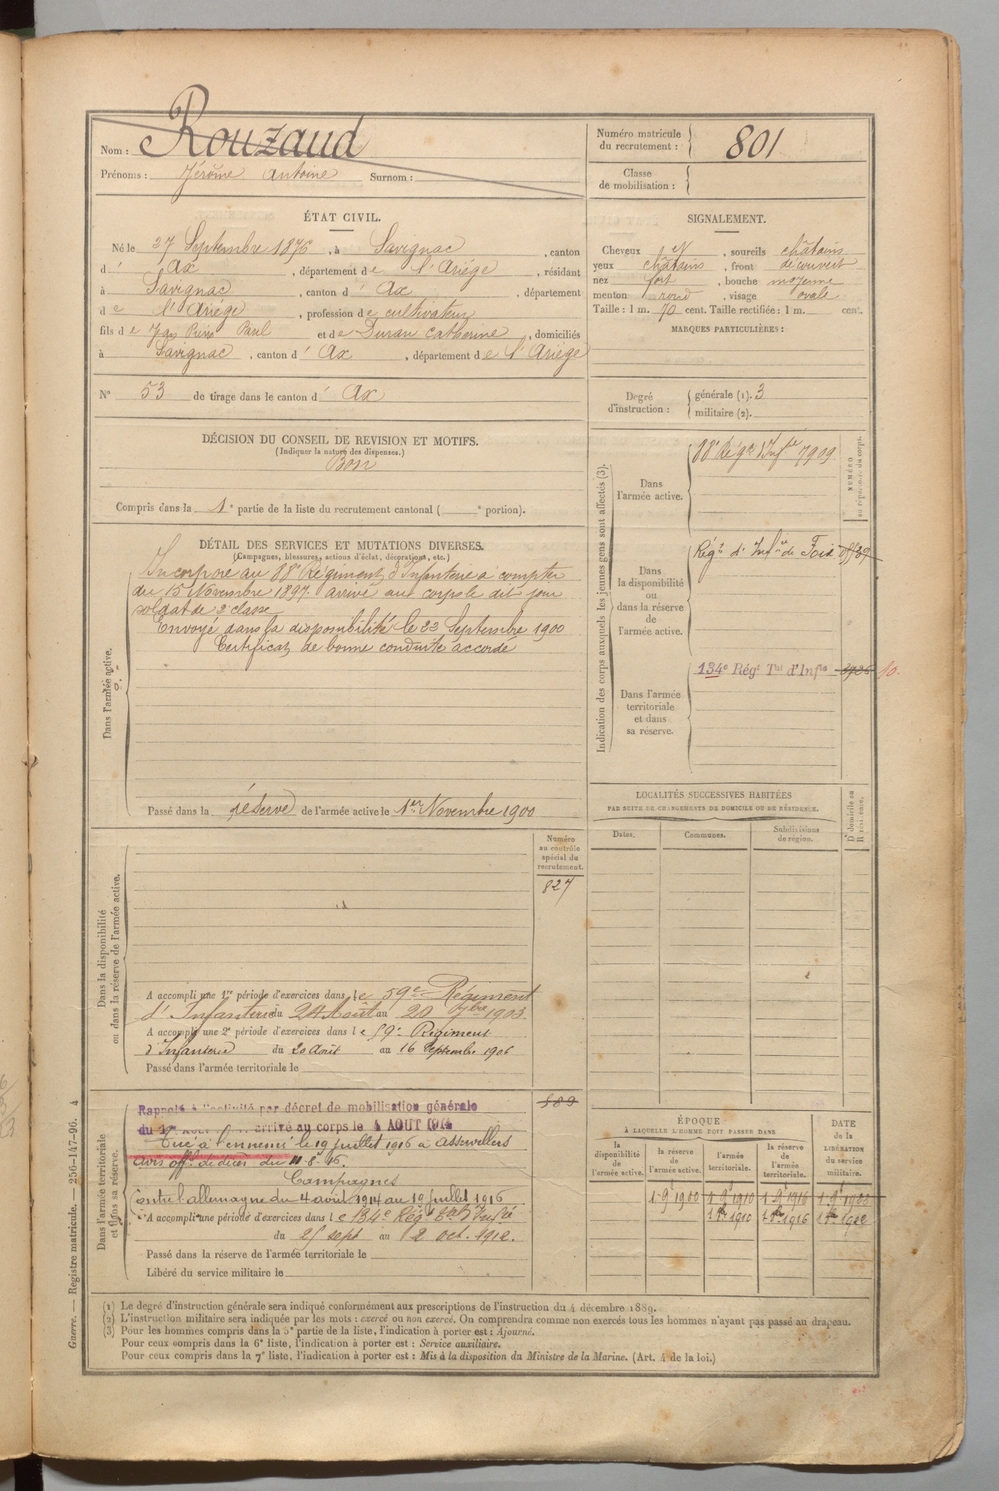 Nom : Rouzaud
Prénoms : Jérôme Antoine Surnom :
Numéro matricule du recrutement : 801
Classe de mobilisation :
ÉTAT CIVIL.
Né le 27 Septembre 1876, à Savignac, canton
d' Ax, département de l'Ariége, résidant
à Savignac, canton d' Ax, département
de l'Ariége, profession de cultivateur
fils de Jean Pierre Paul et de Duran Catherine, domiciliés
à Savignac, canton d' Ax, département de l'Ariége
N° 53 de tirage dans le canton d' Ax
DÉCISION DU CONSEIL DE REVISION ET MOTIFS.
(Indiquer la nature des dispenses.)
Bon
Compris dans la 1e partie de la liste du recrutement cantonal ( e portion).
SIGNALEMENT.
Cheveux et, sourcils châtains
yeux châtains, front découvert
nez fort, bouche moyenne
menton rond, visage ovale
Taille : 1 m. 70 cent. Taille rectifiée : 1 m. cent.
MARQUES PARTICULIÈRES :
Degré d'instruction :
générale (1). 3
militaire (2).
DÉTAIL DES SERVICES ET MUTATIONS DIVERSES.
(Campagnes, blessures, actions d'éclat, décorations, etc.)
Dans l'armée active.
Incorporé au 88e Régiment d'Infanterie à compter
du 15 Novembre 1897. arrivé au corps le dit jour
soldat de 2e classe
Envoyé dans la disponibilité le 23 Septembre 1900
Certificat de bonne conduite accordé
Passé dans la réserve de l'armée active le 1er Novembre 1900
Indication des corps auxquels les jeunes gens sont affectés (3).
NUMÉRO au répertoire du corps.
Dans l'armée active.
88e Régt d'Infie 7909
Dans la disponibilité ou dans la réserve de l'armée active.
Régt d'Infie de Foix
Dans l'armée territoriale et dans sa réserve.
134e Régt Tal d'Infie
LOCALITÉS SUCCESSIVES HABITÉES
PAR SUITE DE CHANGEMENTS DE DOMICILE OU DE RÉSIDENCE.
Dates. Communes. Subdivisions de région. D. domicile ou R. résidence.
Dans la disponibilité ou dans la réserve de l'armée active.
Numéro au contrôle spécial du recrutement.
827
A accompli une 1re période d'exercices dans le 59e Régiment
d'Infanterie du 24 Août au 20 7bre 1903.
A accompli une 2e période d'exercices dans le 59e Régiment
d'Infanterie du 20 Août au 16 Septembre 1906
Passé dans l'armée territoriale le
Dans l'armée territoriale et dans sa réserve.
589
Rappelé à l'activité par décret de mobilisation générale
du 1er AOUT arrivé au corps le 4 AOUT 1914
Tué à l'ennemi le 19 juillet 1916 à Assevillers
avis offel de décès du 11-8-16.
Campagnes
Contre l'allemagne du 4 août 1914 au 19 juillet 1916
A accompli une période d'exercices dans le 134e Rég. Tal d'Infie
du 25 sept au 2 oct. 1912.
Passé dans la réserve de l'armée territoriale le
Libéré du service militaire le
ÉPOQUE
À LAQUELLE L'HOMME DOIT PASSER DANS
la disponibilité de l'armée active. la réserve de l'armée active. l'armée territoriale. la réserve de l'armée territoriale. DATE de la LIBÉRATION du service militaire.
1-9e 1900 1 9e 1910 1 9e 1916
1 8bre 1910 1 8bre 1916 1 8bre 1922
(1) Le degré d'instruction générale sera indiqué conformément aux prescriptions de l'instruction du 4 décembre 1889.
(2) L'instruction militaire sera indiquée par les mots : exercé ou non exercé. On comprendra comme non exercés tous les hommes n'ayant pas passé au drapeau.
(3) Pour les hommes compris dans la 5e partie de la liste, l'indication à porter est : Ajourné.
Pour ceux compris dans la 6e liste, l'indication à porter est : Service auxiliaire.
Pour ceux compris dans la 7e liste, l'indication à porter est : Mis à la disposition du Ministre de la Marine. (Art. 4 de la loi.)
Guerre. — Registre matricule. — 256-147-96. 4